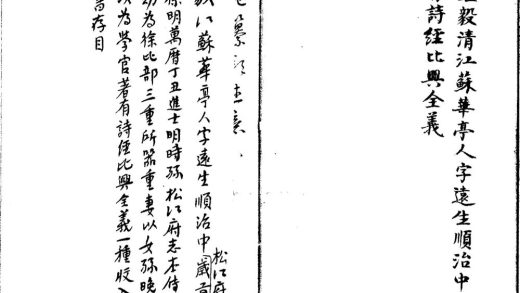 毅清江蘇華亭人字遠生順治中
詩經比興全義
松江府
江蘇華亭人字遠生順治中歲貢
孫明萬曆丁丑進士明時孫松江府志本傳
幼為徐比部三重所器重妻以女孫晚
以為學官著有詩經比興全義一種收入
存目